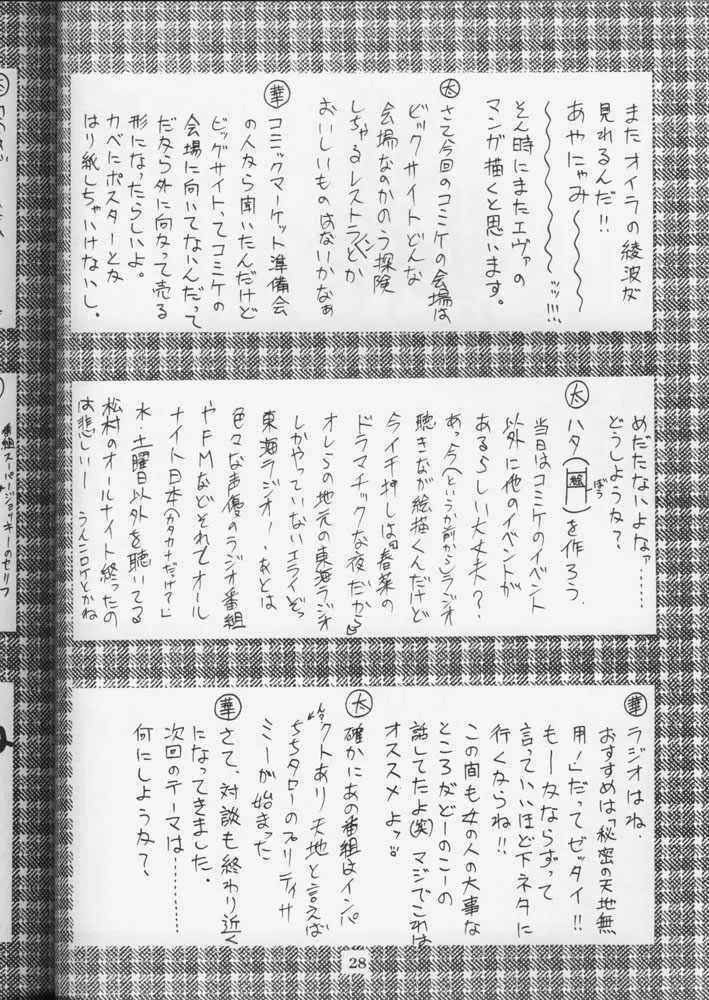 またオイラの綾波が
見れるんだ!!
あやにゃみ〜
〜〜〜ッ!!!
そん時にまたエヴァの
マンガ描くと思います。
太 さて今回のコミケの会場は
ビックサイトどんな
会場なのかのう探険
しちゃるレストランとか
おいしいものはないかなぁ
華 コミックマーケット準備会
の人から聞いたんだけど
ビッグサイトってコミケの
会場に向いてないんだって
だから外に向かって売る
形になったらしいよ。
カベにポスターとか
はり紙しちゃいけないし。
めだたないよなァ……
どうしようか?
太 ハタ(絵 ぼう)を作ろう.
当日はコミケのイベント
以外に他のイベントが
あるらしい大丈夫?
あっ今(というか前から)ラジオ
聴きなが絵描くんだけど
今イチ押しは『春菜の
ドラマチックな夜だから』
オレらの地元の東海ラジオ
しかやっていないエライぞっ
東海ラジオ!.あとは
色々な声優のラジオ番組
やFMなどそれとオール
ナイト日本(カタカナだっけ?)
水・土曜日以外を聴いてる
松村のオールナイト終ったの
は悲しいー うんこロケとかね
華 ラジオはね、
おすすめは「秘密の天地無
用!」だってゼッタイ!!
もーかならずって
言っていいほど下ネタに
行くからね!!
この間も女の人の大事な
ところがどーのこーの
話してたよ(笑)マジでこれは
オススメよッ
太 確かにあの番組はインパ
クトあり 天地と言えば
ちちタローのプリティサ
ミーが始まった
華 さて、対談も終わり近く
になってきました。
次回のテーマは………
何にしようか?
番組スーパージョッキーのセリフ
28